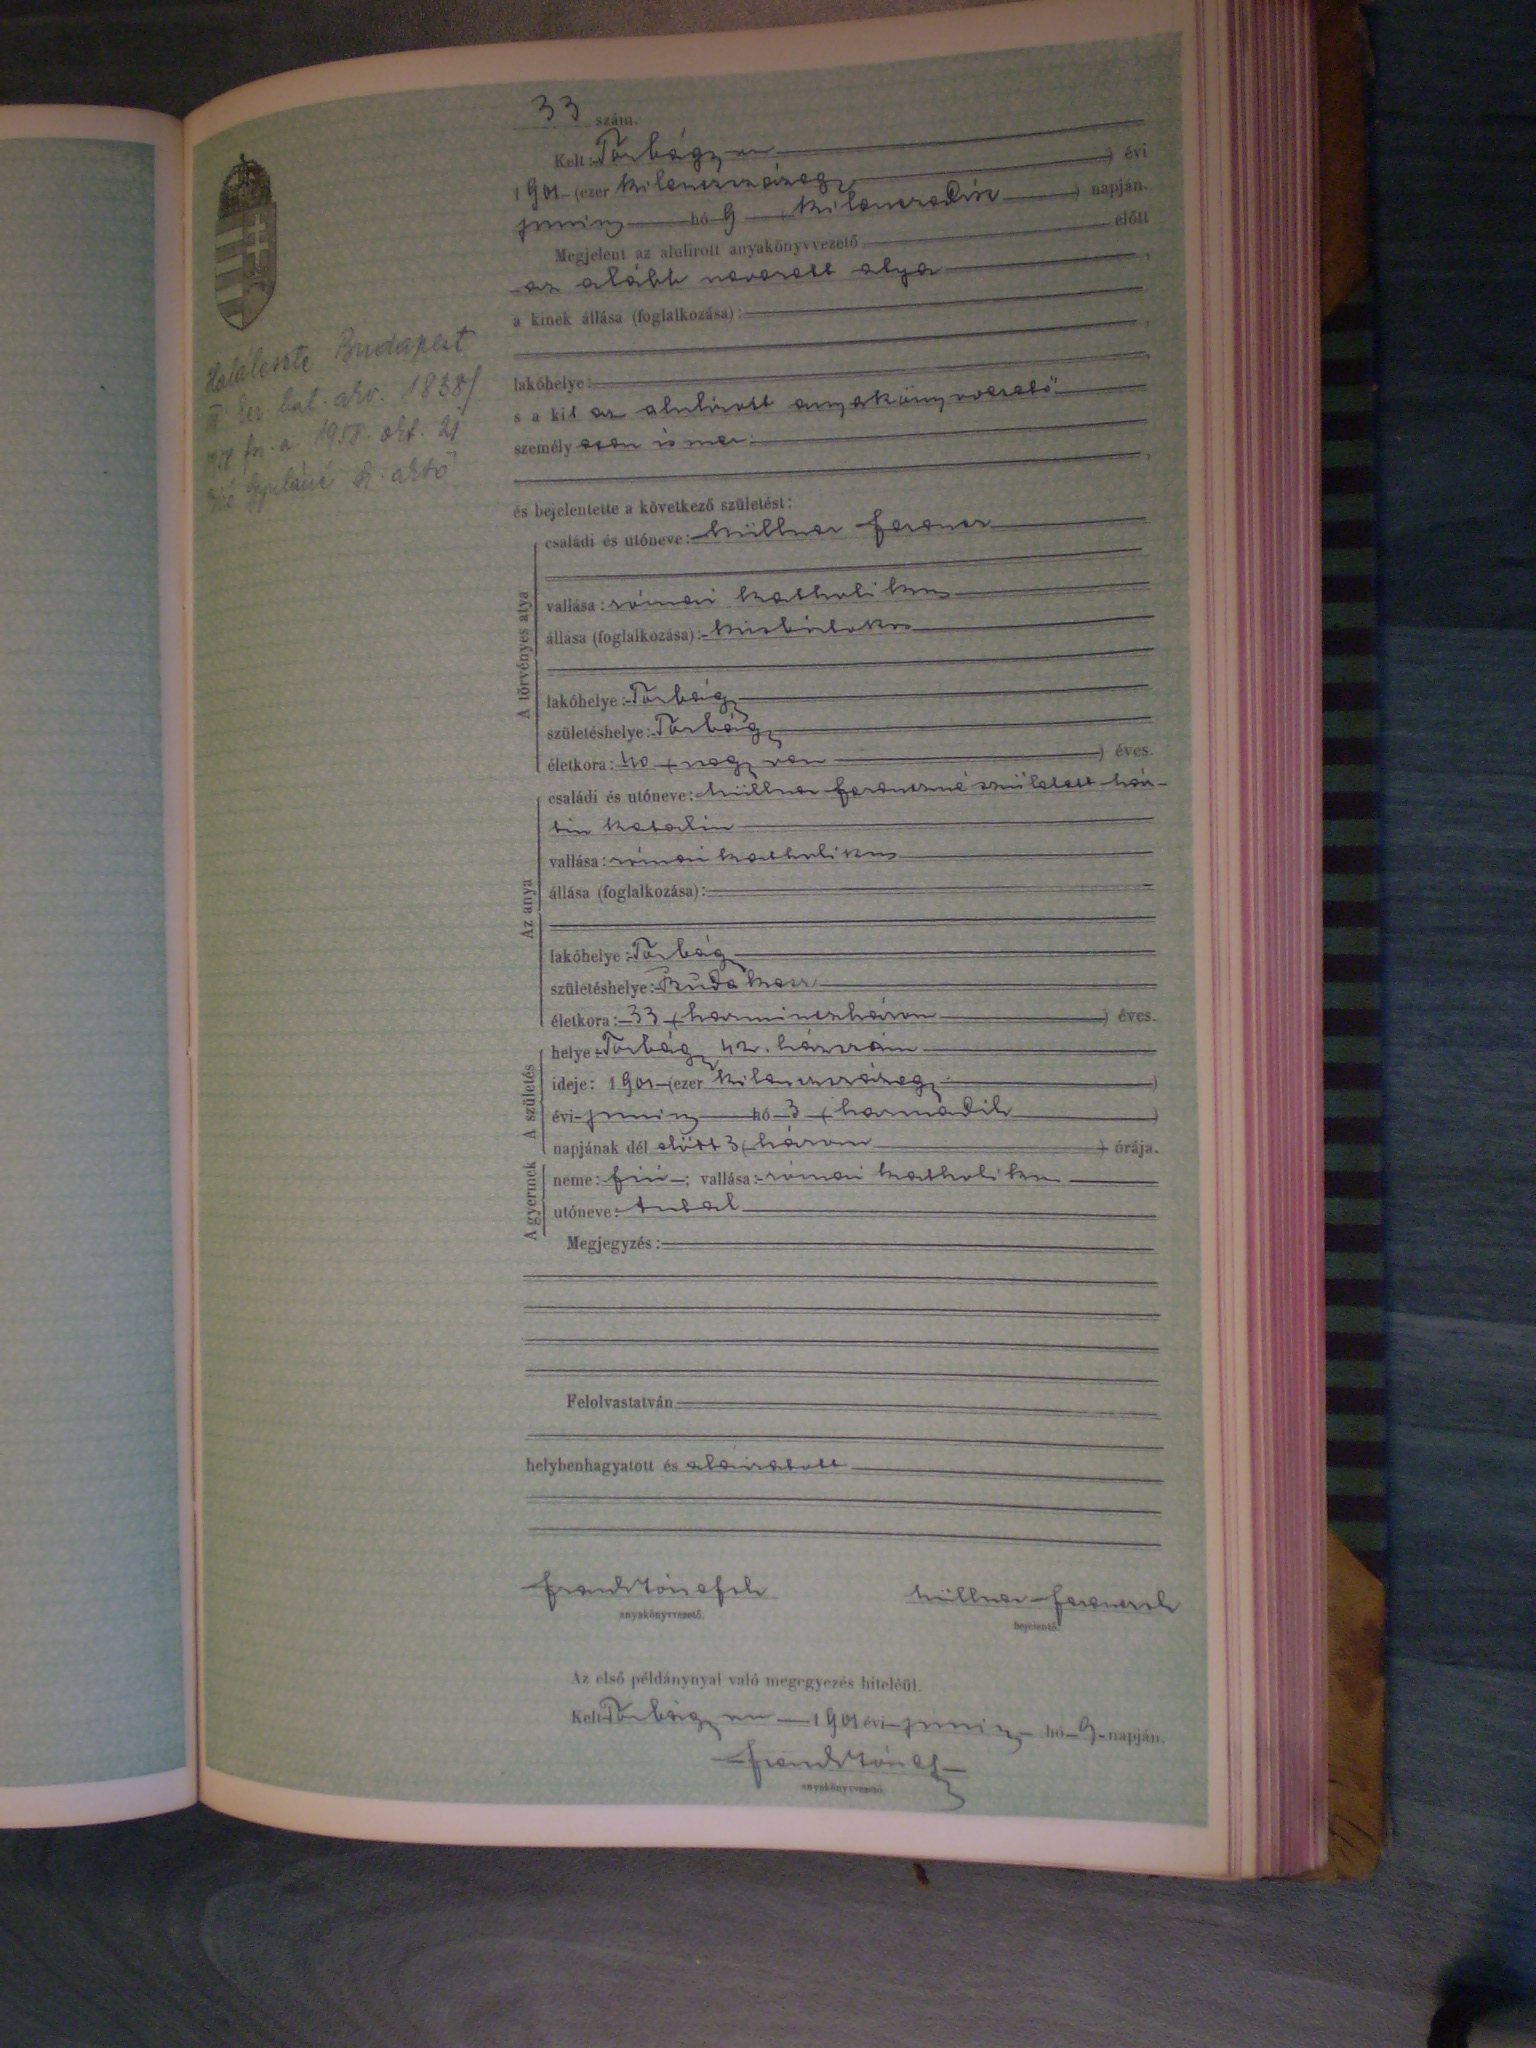 33 szám.
Kelt: Torbágyon
1901 (ezer kilenczszázegy) évi
junius hó 9 (kilenczedik) napján.
Megjelent az alulirott anyakönyvvezető előtt
az alább nevezett atya,
a kinek állása (foglalkozása):
lakóhelye:
s a kit az alulirott anyakönyvvezető
személyesen ismer.
és bejelentette a következő születést:
A törvényes atya
családi és utóneve: Müllner Ferencz
vallása: római katholikus
állása (foglalkozása): kisbirtokos
lakóhelye: Torbágy
születéshelye: Torbágy
életkora: 40 (negyven) éves.
Az anya
családi és utóneve: Müllner Ferenczné született
Katalin
vallása: római katholikus
állása (foglalkozása):
lakóhelye: Torbágy
születéshelye: Budakesz
életkora: 33 (harminczhárom) éves.
A születés
helye: Torbágy 42. házszám
ideje: 1901 (ezer kilenczszázegy)
évi junius hó 3 (harmadik)
napjának dél előtt 3 (három) órája.
A gyermek
neme: fiú; vallása: római katholikus
utóneve: Antal
Megjegyzés:
Felolvastatván
helybenhagyatott és aláiratott
Frank József sk Müllner Ferencz sk
anyakönyvvezető. bejelentő.
Az első példánynyal való megegyezés hiteléül.
Kelt Torbágyon 1901 évi junius hó 9 napján.
Frank József
anyakönyvvezető.
Halálesete Budapest
III. ker hal. akv. 1838/
1958 fsz. a 1958. okt. 21